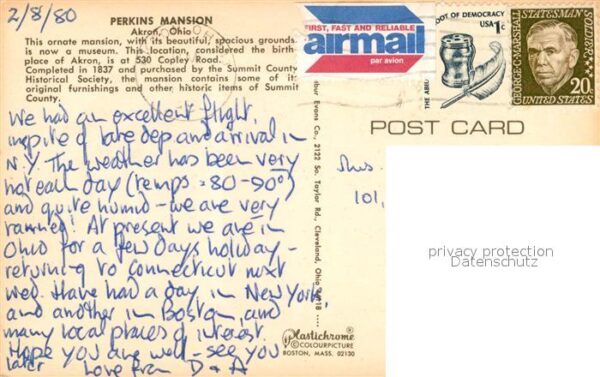 2/8/80
PERKINS MANSION
Akron, Ohio
This ornate mansion, with its beautiful, spacious grounds
is now a museum. This location, considered the birth-
place of Akron, is at 530 Copley Road.
Completed in 1837 and purchased by the Summit County
Historical Society, the mansion contains some of its
original furnishings and other historic items of Summit
County.
We had an excellent flight,
inspite of late dep and arrival in
N.Y. The weather has been very
hot each day (temps = 80-90°)
and quite humid - we are very
tanned! At present we are in
Ohio for a few days holiday -
returning to Connecticut next
Wed. Have had a day in New York,
and another in Boston, and
many local places of interest.
Hope you are well - see you
later Love from D & A
FIRST, FAST AND RELIABLE
airmail
par avion
OOT OF DEMOCRACY
USA 1c
THE ABI
GEORGE C. MARSHALL
STATESMAN
SOLDIER
20c
UNITED STATES
POST CARD
bur Evans Co., 2122 So. Taylor Rd., Cleveland, Ohio 18
101,
Plastichrome®
by COLOURPICTURE
BOSTON, MASS. 02130
privacy protection
Datenschutz